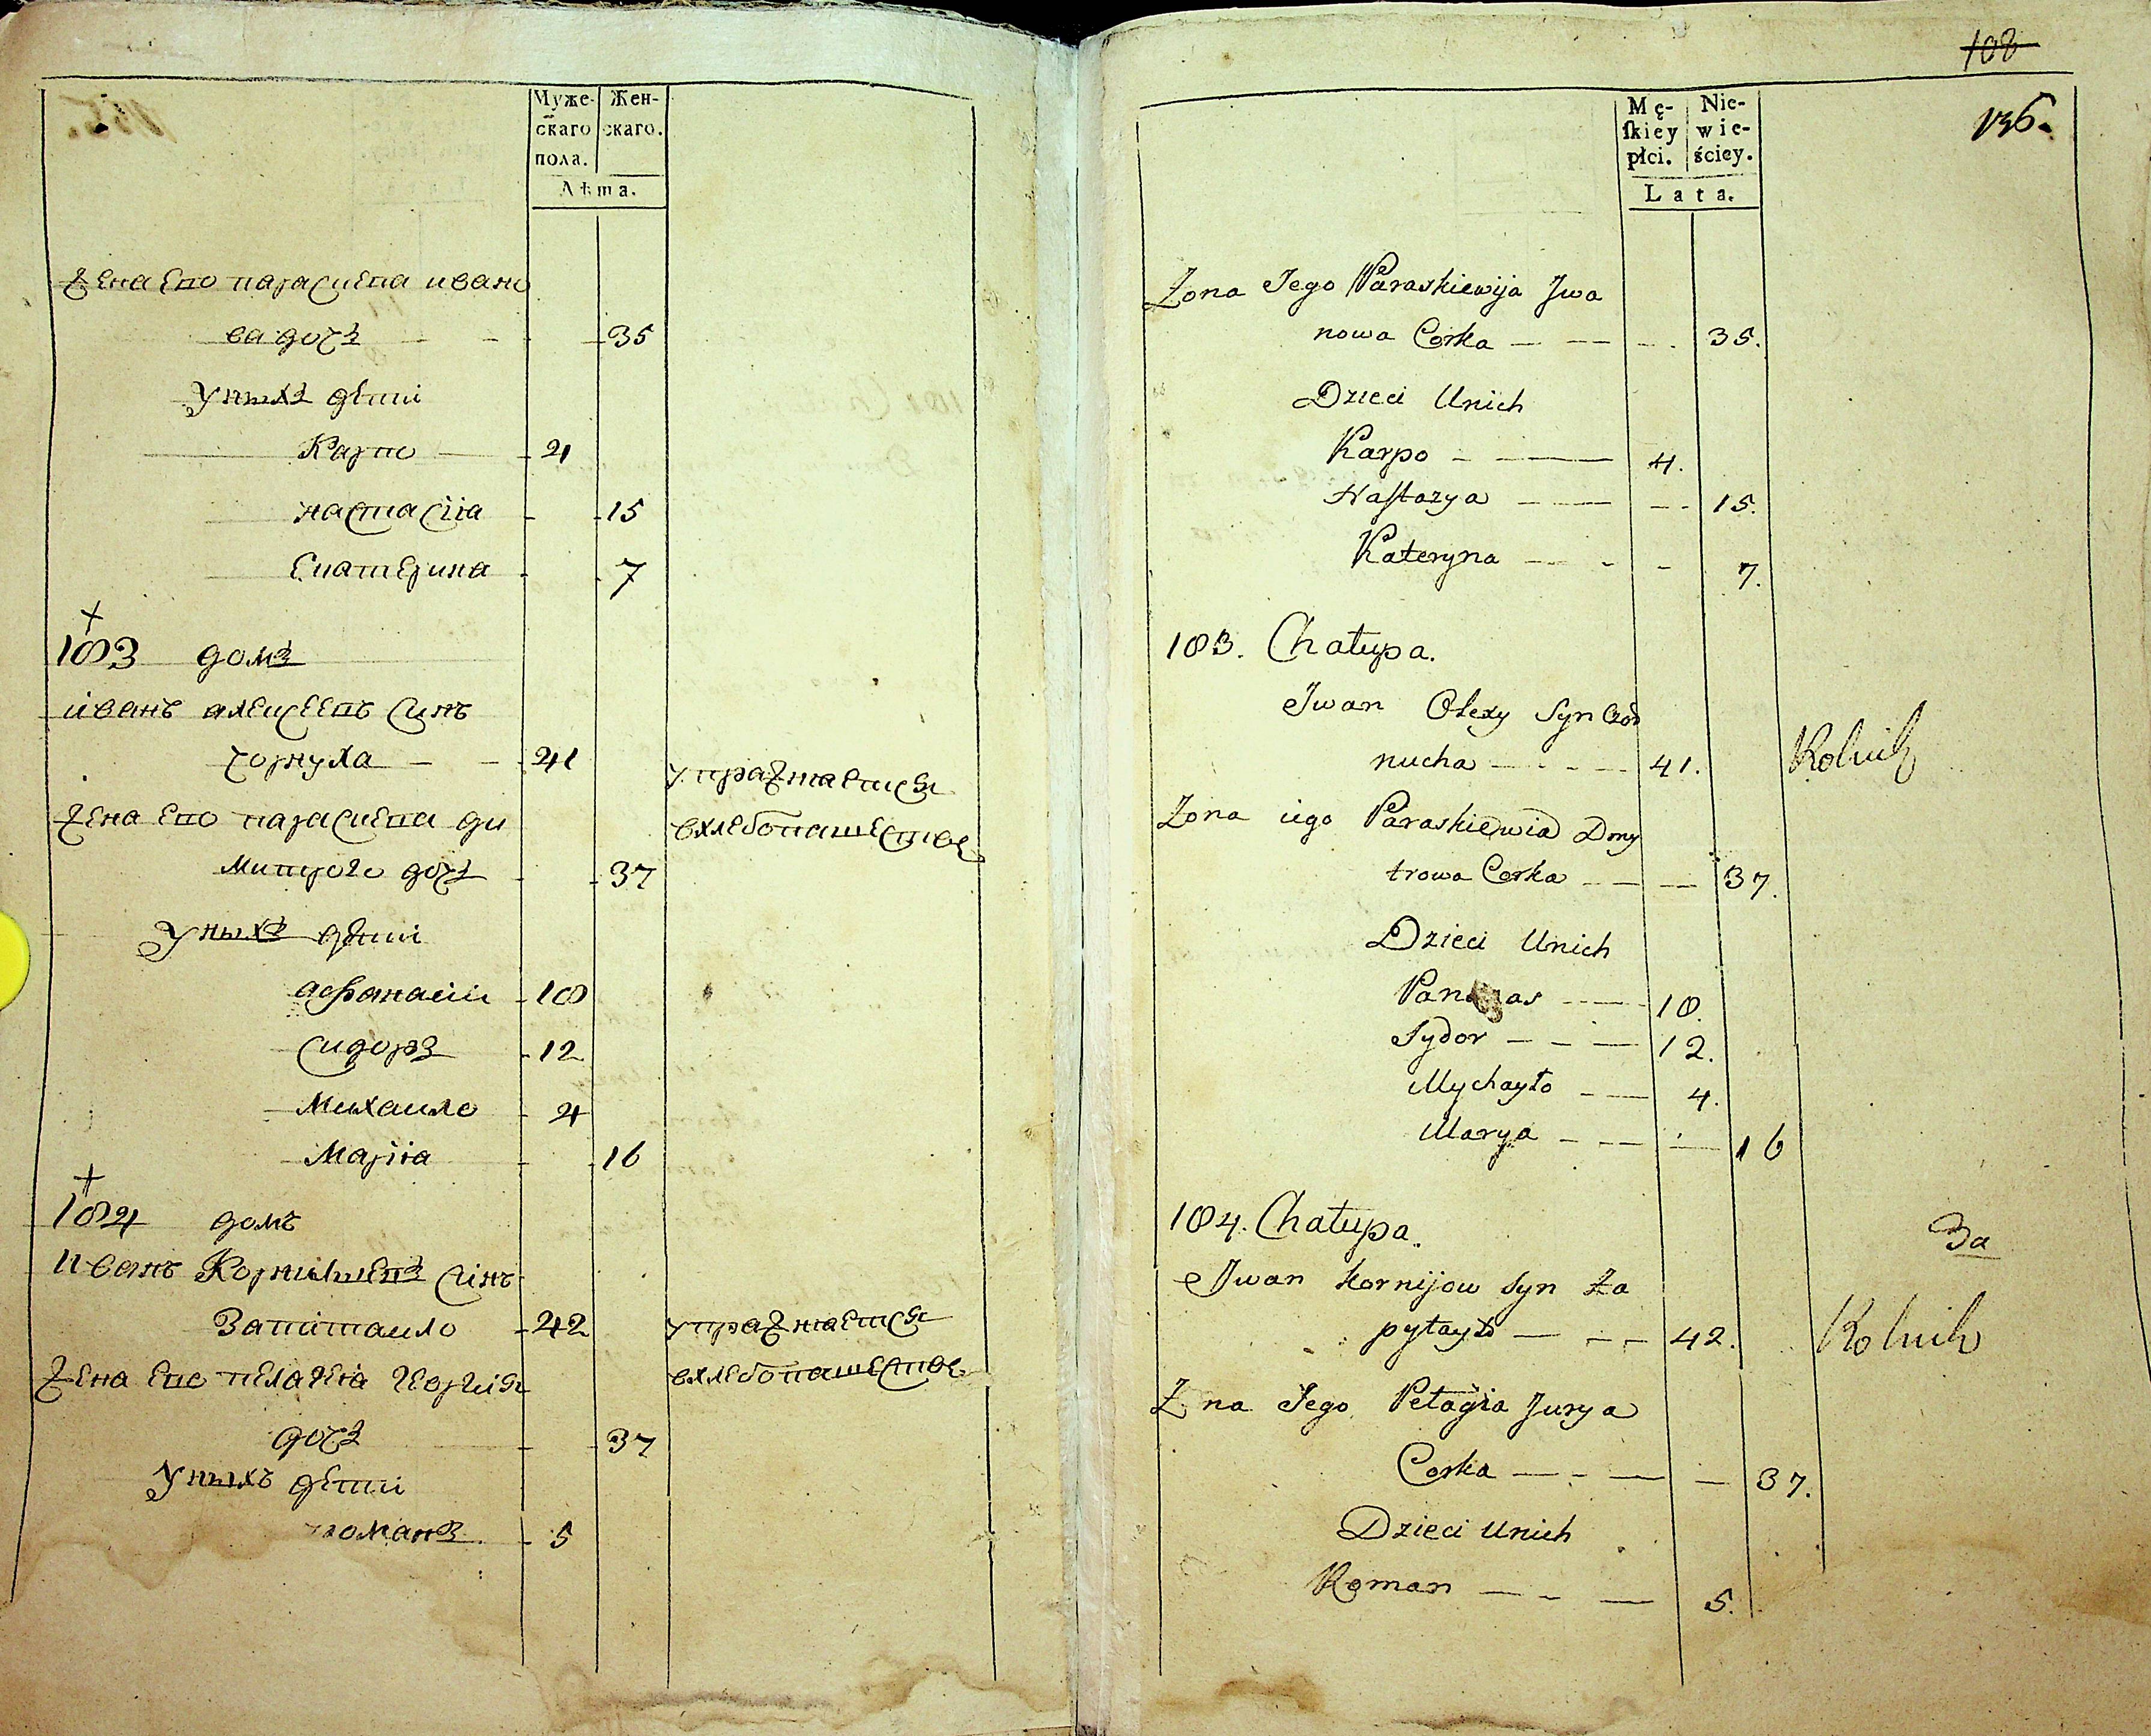 Муже-
скаго
пола.
Жен-
скаго.
Лѣта.
жена его параскева ивано
ва дочъ 35
У ныхъ дети
Карпо 4
настасiя 15
Екатерина 7
183 домъ
иванъ алексеевъ синъ
чорнуха 41
упражняется
в хлебопашестве
жена его параскева ди
митрого дочъ 37
У ныхъ дети
афанасии 18
Сидоръ 12
Михаило 4
Марiя 16
184 домъ
иванъ Корниевъ синъ
Запитаило 42
упражняется
в хлебопашестве
жена его пелагея георгия
дочъ 37
У ныхъ дети
романъ 5
108
136.
Mę-
ſkiey
płci.
Nie-
wie-
ściey.
Lata.
Zona Jego Paraskiewija Jwa
nowa Corka 35.
Dzieci Unich
Karpo 4.
Naſtazya 15.
Kateryna 7.
183. Chałupa.
Jwan Olexy Syn Czor
nucha 41. Rolnik
Zona iego Paraskiewia Dmy
trowa Corka 37.
Dzieci Unich
18.
Sydor 12.
Mychayło 4.
Marya 16
184. Chałupa.
За
Jwan Kornijow Syn Za
pytayło 42. Rolnik
Z na Jego Pełagia Jurya
Corka 37.
Dzieci Unich
Roman 5.